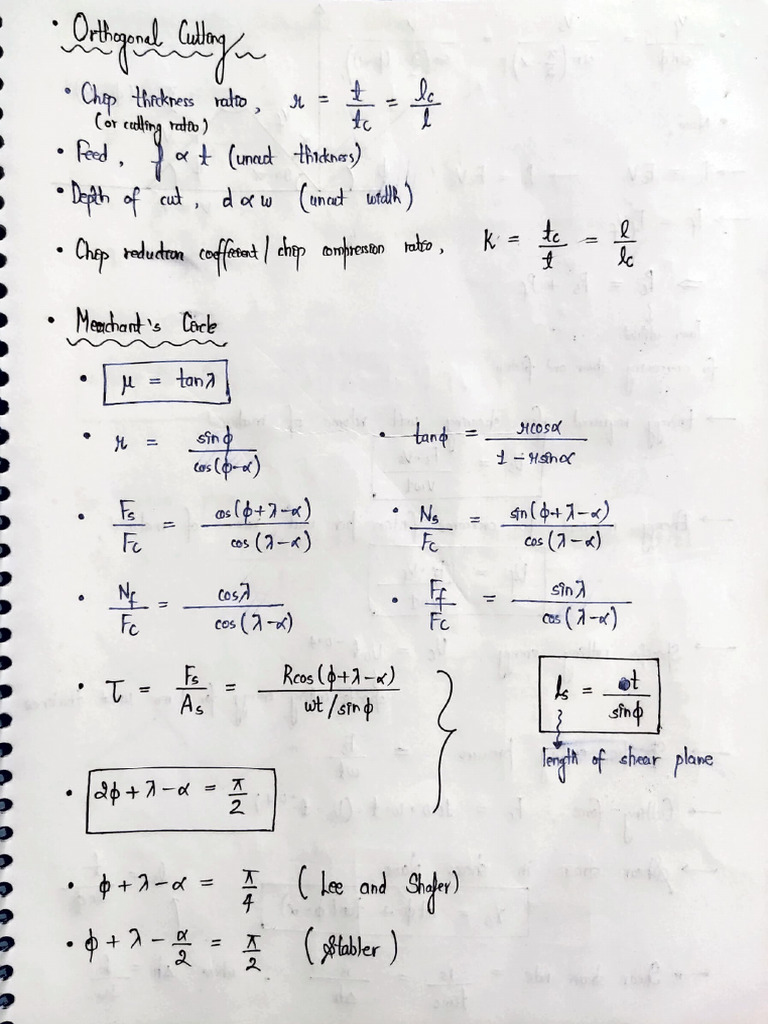 • Orthogonal Cutting
• Chip thickness ratio, r = t/tc = lc/l
(or cutting ratio)
• Feed, f ∝ t (uncut thickness)
• Depth of cut, d ∝ w (uncut width)
• Chip reduction coefficient / chip compression ratio, K = tc/t = l/lc
• Merchant's Circle
• μ = tanλ
• r = sinφ / cos(φ-α) • tanφ = rcosα / 1 - rsinα
• Fs/Fc = cos(φ+λ-α) / cos(λ-α) • Ns/Fc = sin(φ+λ-α) / cos(λ-α)
• Nf/Fc = cosλ / cos(λ-α) • Ff/Fc = sinλ / cos(λ-α)
• τ = Fs/As = Rcos(φ+λ-α) / wt/sinφ ls = t/sinφ
length of shear plane
• 2φ+λ-α = π/2
• φ+λ-α = π/4 (Lee and Shafer)
• φ+λ-α/2 = π/2 (Stabler)